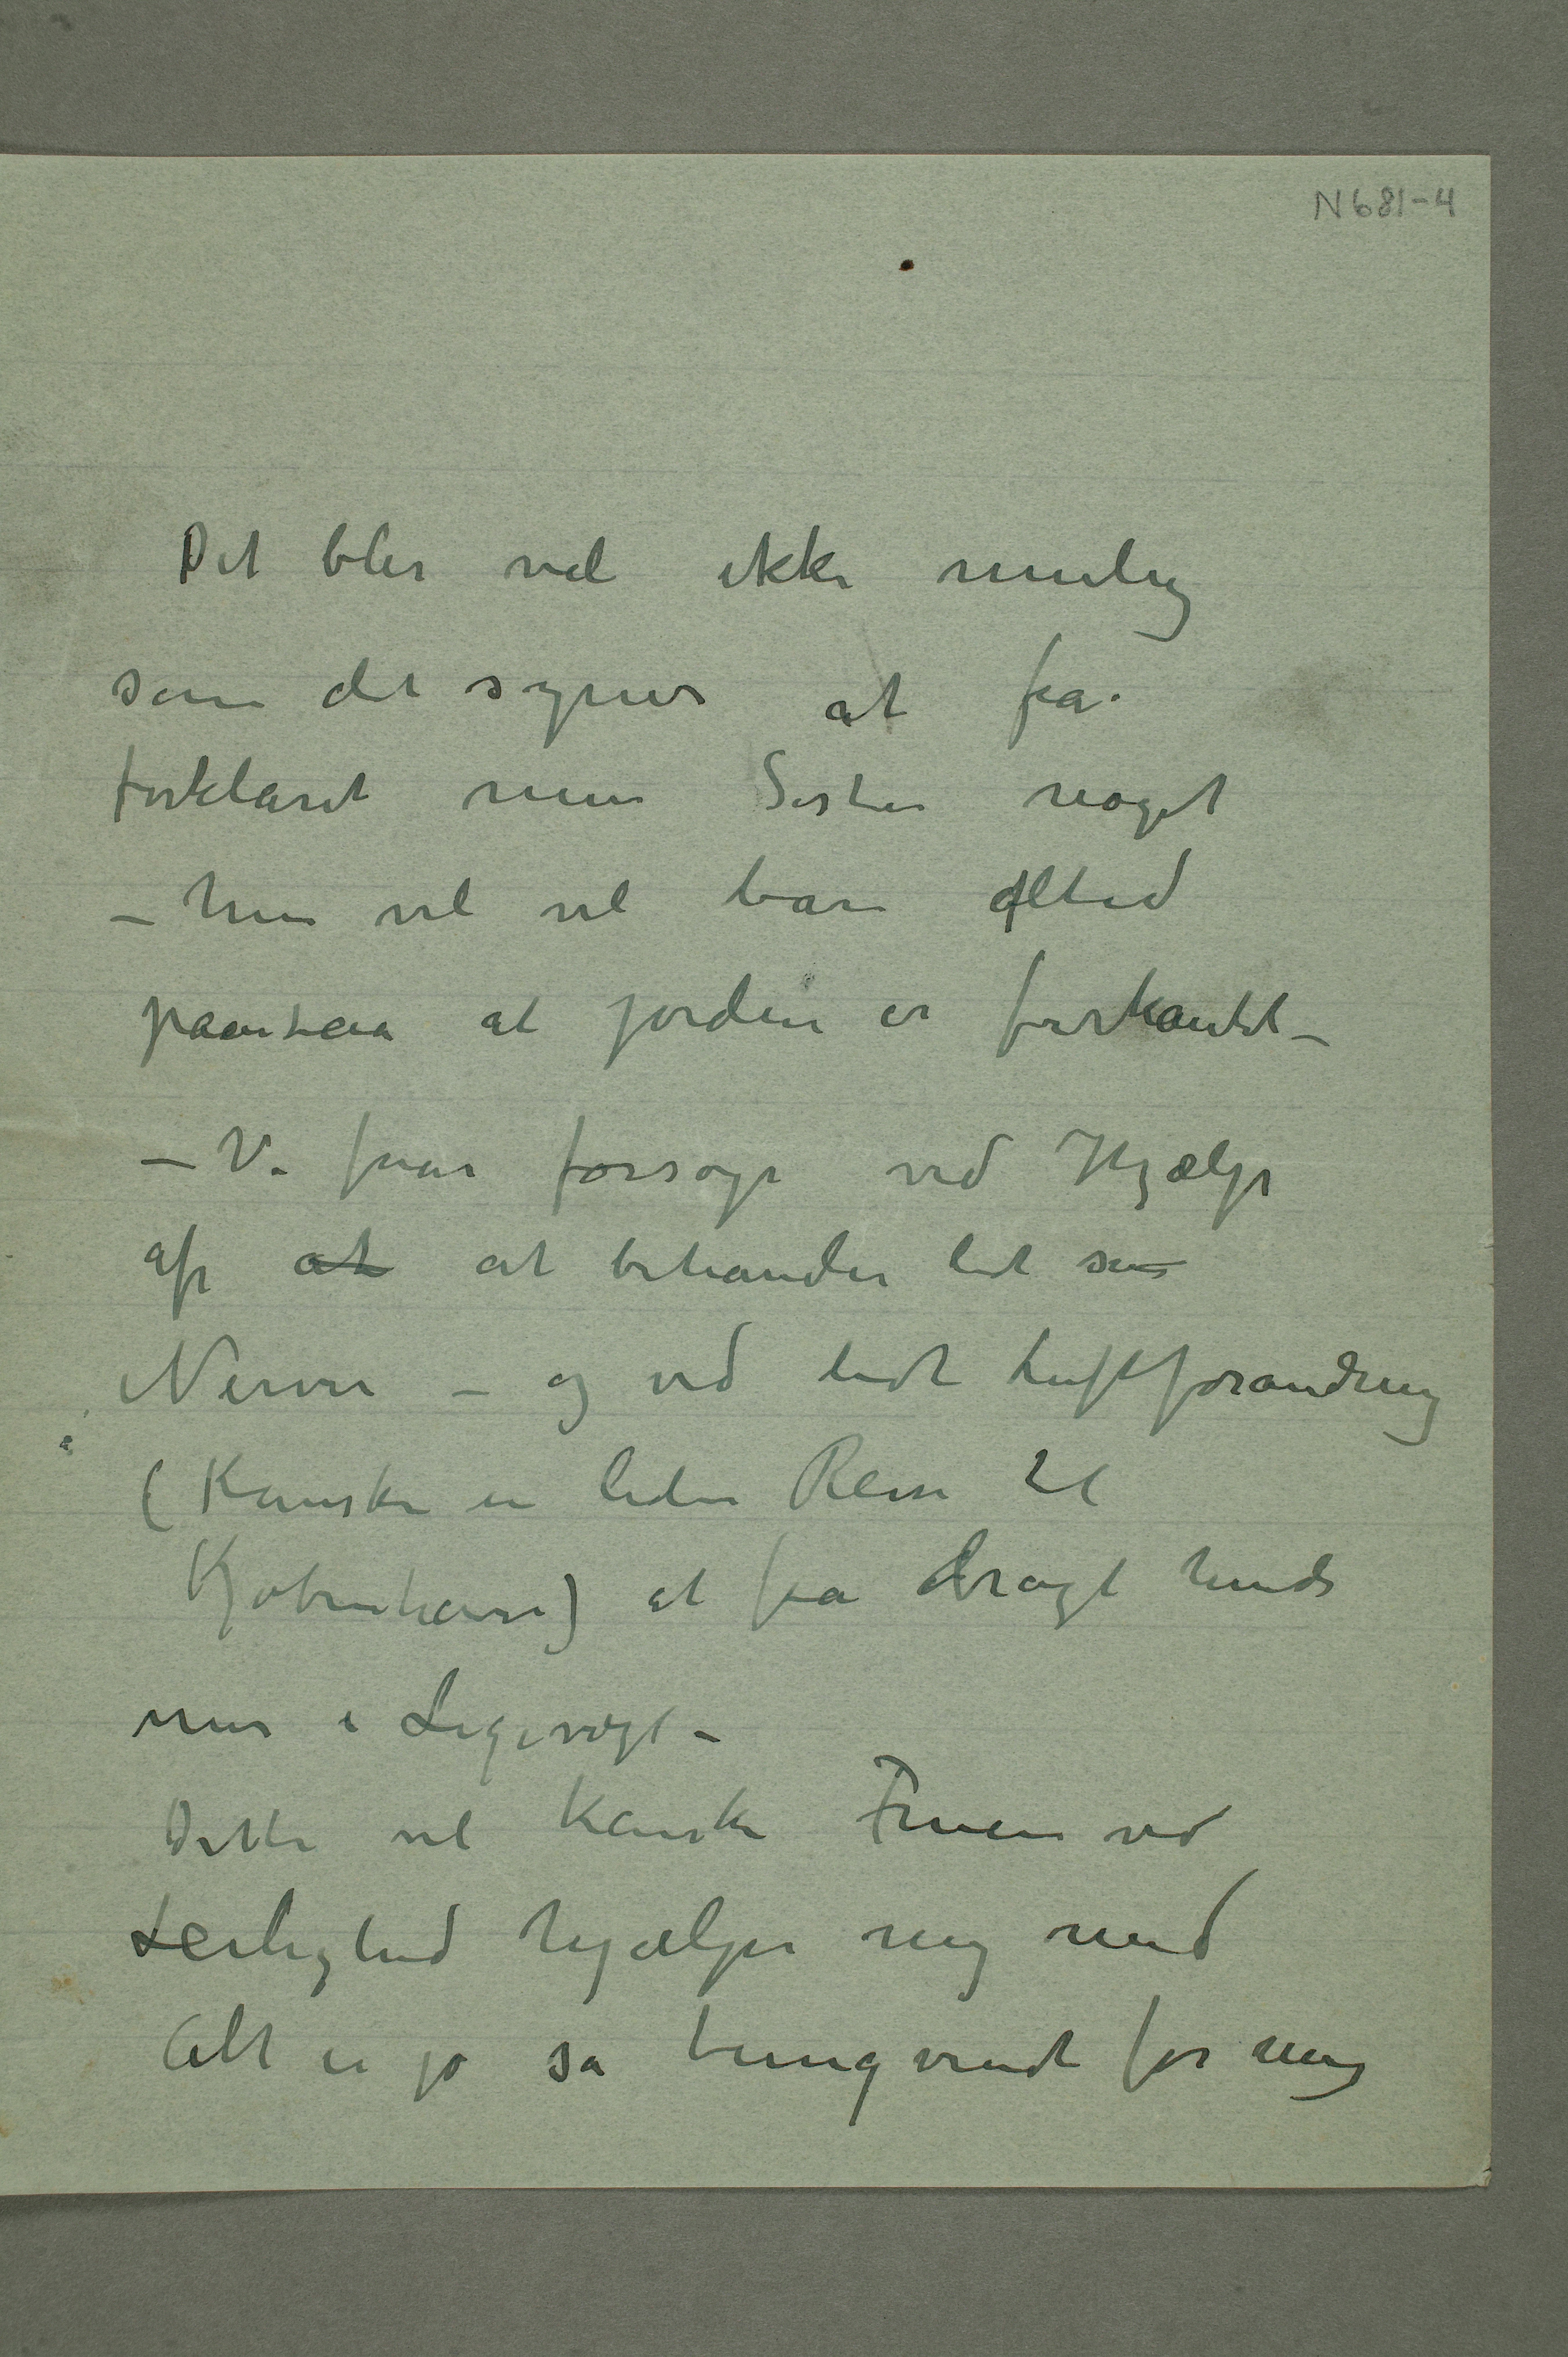 N 681-4
Det blir vel ikke mulig
som det synes at få
forklaret min Søster noget
– hun vil vel bare altid
paastaa at jorden er firkantet –
– Vi faar forsøge ved Hjælp
af at at behandle lidt sine
Nerver – og ved lidt Luftforandring
(Kanske en liden Reise til
Kjøbenhavn) at få bragt hendes
i Ligevægt –
Dette vil kanske Fruen ved
Leilighed hjælpe mig med
Alt er jo så tungvindt for mig